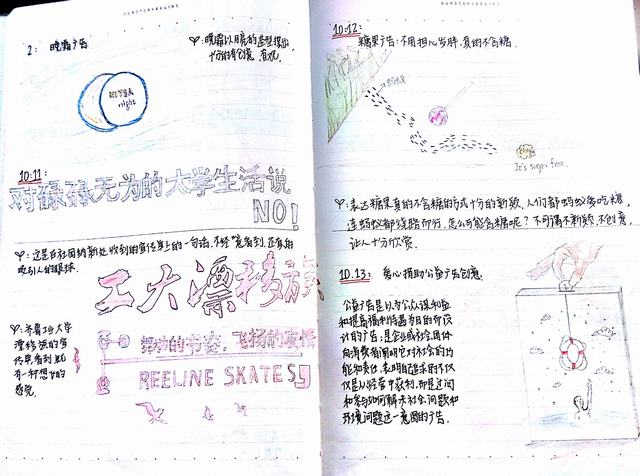 2: 晚霜广告
♀:晚霜以月亮的造型提出
十分的有创意, 直观.
NIVEA
night
10:11:
对碌碌无为的大学生活说
NO!
♀:这是在社团纳新处收到的宣传单上的一句话,不经意看到,还真的
吸引人的眼球.
工大漂移族
♀:齐鲁工业大学
漂移族的宣
传单看到就
有一种想飞的
感觉.
舞动的书姿, 飞扬的表情
REELINE SKATES
10:12:
糖果广告:不用担心发胖,真的不含糖.
蚂蚁
It's suger free.
♀:表达糖果真的不含糖的方式十分的新颖,人们都蚂蚁爱吃糖,
连蚂蚁都绕路而行,怎么可能含糖呢?不可谓不新颖,不创意,
让人十分欣赏.
10.13: 爱心捐助公益广告创意.
公益广告是以为公众谋利益
和提高福利待遇为目的而设
计的广告;是企业或社会团体
向消费者阐明它对社会的功
能和责任,表明自己追求的不仅
仅是从经营中获利,而是过问
和参与如何解决社会问题和
环境问题这一意图的广告.